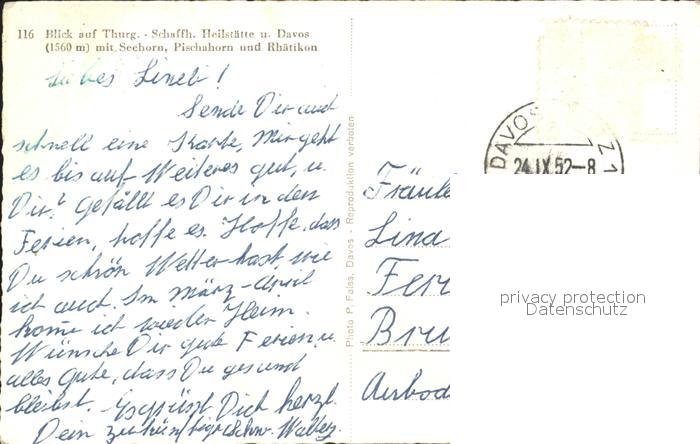 116 Blick auf Thurg. - Schaffh. Heilstätte u. Davos
(1560 m) mit Seehorn, Pischahorn und Rhätikon
Liebes Lineli!
Sende Dir auch
schnell eine Karte, Mir geht
es bis auf Weiteres gut, u.
Dir? Gefällt es Dir in den
Ferien, hoffe es. Hoffe, dass
Du schön Wetter hast wie
ich auch. Im März-April
kome ich wieder Heim.
Wünsche Dir gute Ferien u.
alles Gute, dass Du gesund
bleibst. Es grüsst Dich herzl.
Dein zukünftiger Schw. Walter.
Photo P. Faiss, Davos - Reproduktion verboten
DAVOS
24.IX.52-8
Fräule
Lina
Fer
Bru
privacy protection
Datenschutz